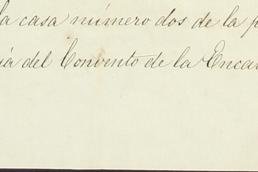 la casa número dos de la p
ia del Convento de la Encar